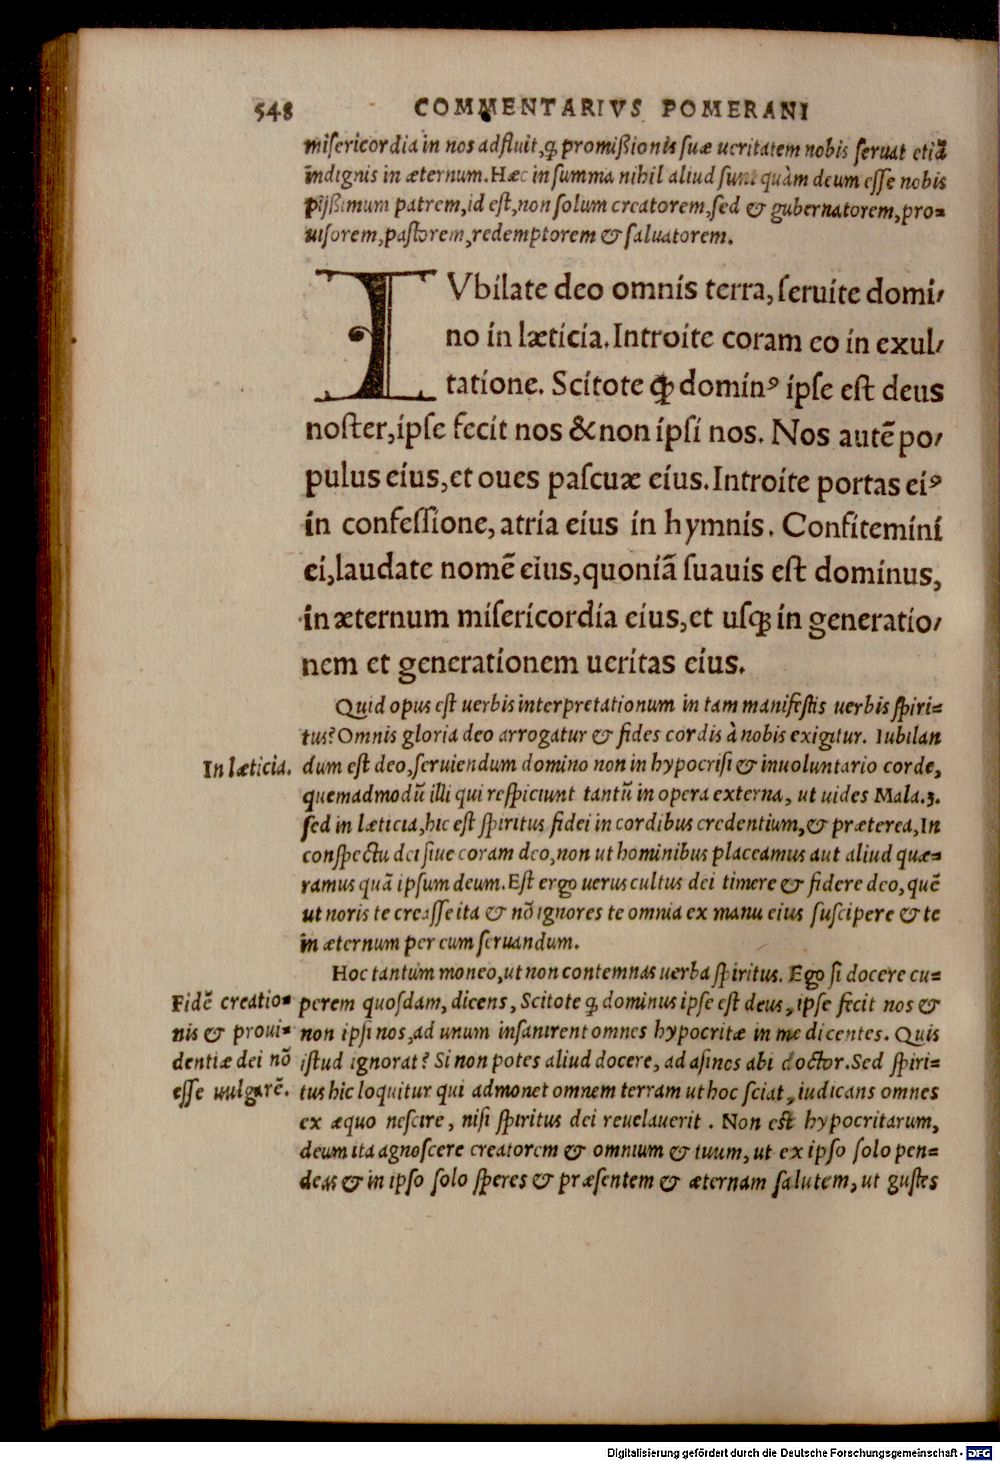 548 COMMENTARIVS POMERANI
misericordia in nos adfluit, q̃ promißionis suæ ueritatem nobis seruat etiã
indignis in æternum. Hæc in summa nihil aliud sunt quàm deum esse nobis
pijßimum patrem, id est, non solum creatorem, sed & gubernatorem, pro=
uisorem, pastorem, redemptorem & saluatorem.
IVbilate deo omnis terra, seruite domi/
no in læticia. Introite coram eo in exul/
tatione. Scitote ꝙ dominꝰ ipse est deus
noster, ipse fecit nos & non ipsi nos. Nos autẽ po/
pulus eius, et oues pascuæ eius. Introite portas eiꝰ
in confessione, atria eius in hymnis. Confitemini
ei, laudate nomẽ eius, quoniã suauis est dominus,
in æternum misericordia eius, et usqꝫ in generatio/
nem et generationem ueritas eius.
Quid opus est uerbis interpretationum in tam manifestis uerbis spiri=
tus? Omnis gloria deo arrogatur & fides cordis à nobis exigitur. Iubilan
In læticia. dum est deo, seruiendum domino non in hypocrisi & inuoluntario corde,
quemadmodũ illi qui respiciunt tantũ in opera externa, ut uides Mala.3.
sed in læticia, hic est spiritus fidei in cordibus credentium, & præterea, In
conspectu dei siue coram deo, non ut hominibus placeamus aut aliud quæ=
ramus quã ipsum deum. Est ergo uerus cultus dei timere & fidere deo, quẽ
ut noris te creasse ita & nõ ignores te omnia ex manu eius suscipere & te
in æternum per eum seruandum.
Hoc tantum moneo, ut non contemnas uerba spiritus. Ego si docere cu=
Fidẽ creatio= perem quosdam, dicens, Scitote q̃ dominus ipse est deus, ipse fecit nos &
nis & proui= non ipsi nos, ad unum insanirent omnes hypocritæ in me dicentes. Quis
dentiæ dei nõ istud ignorat? Si non potes aliud docere, ad asinos abi doctor. Sed spiri=
esse uulgarẽ. tus hic loquitur qui admonet omnem terram ut hoc sciat, iudicans omnes
ex æquo nescire, nisi spiritus dei reuelauerit. Non est hypocritarum,
deum ita agnoscere creatorem & omnium & tuum, ut ex ipso solo pen=
deas & in ipso solo speres & præsentem & æternam salutem, ut gustes
Digitalisierung gefördert durch die Deutsche Forschungsgemeinschaft - DFG